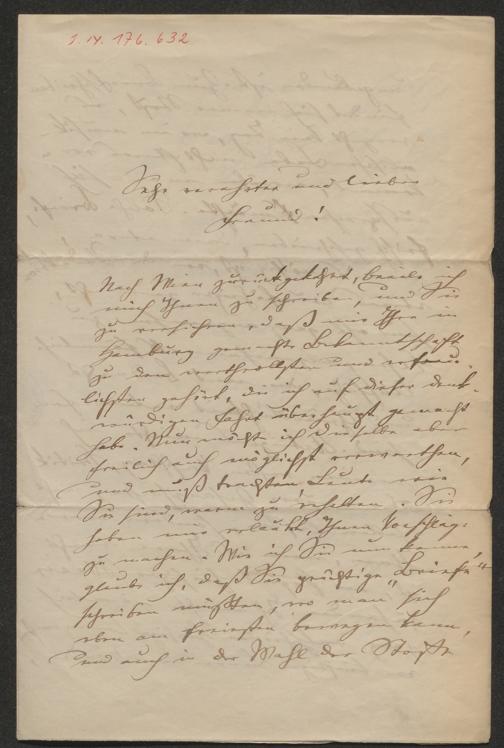 I.N. 176.632
Sehr verehrter und lieber
Freund!
Nach Wien zurückgekehrt, beeile ich
mich Ihnen zu schreiben, und Sie
zu versichern, daß mir Ihre in
Hamburg gemachte Bekanntschaft
zu den werthvollsten und erfreu-
lichsten gehört, die ich auf dieser denk-
würdigen Fahrt überhaupt gemacht
habe. Nun möchte ich dieselbe aber
freilich auch möglichst verwerthen,
und muß trachten, Leute wie
Sie sind, warm zu erhalten. Sie
haben mir erlaubt, Ihnen Vorschläge
zu machen. Wie ich Sie nun kenne,
glaube ich, daß Sie prächtige „Briefe“
schreiben müßten, wo man sich
eben am freiesten bewegen kann,
und auch in der Wahl der Stoffe